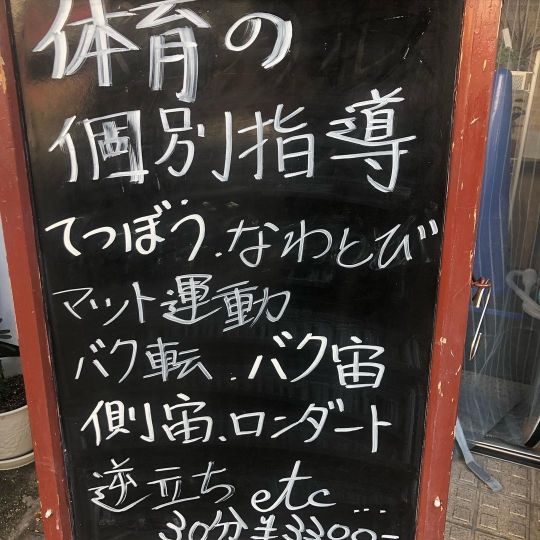 体育の
個別指導
てつぼう.なわとび
マット運動
バク転.バク宙
側宙.ロンダート
逆立ち etc...
30分¥3300-